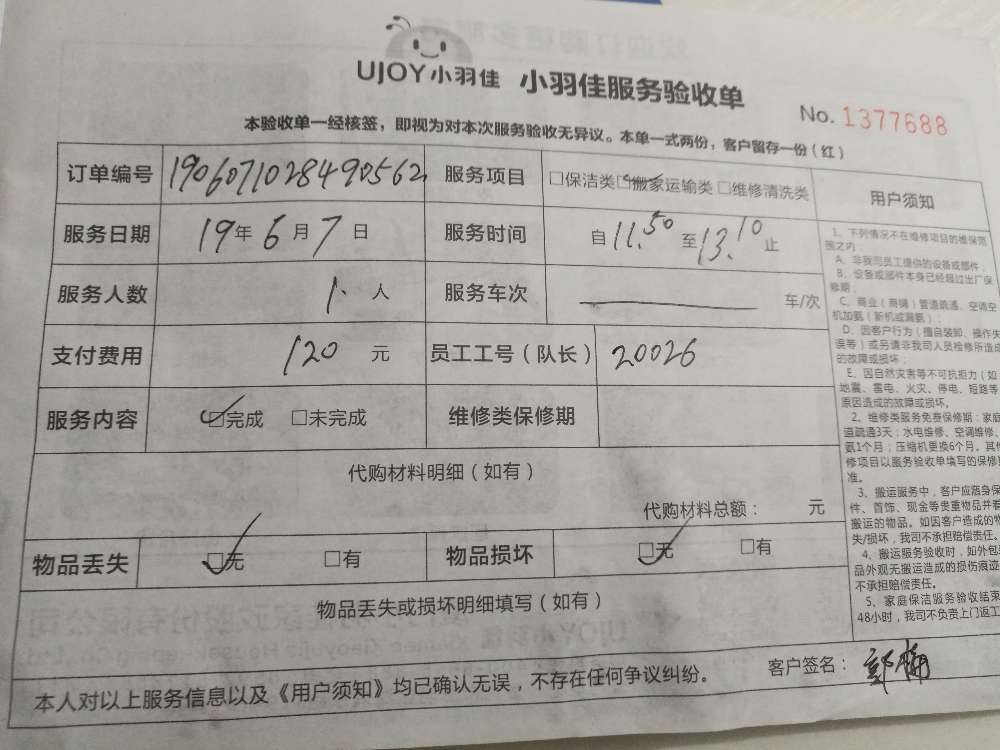 UJOY小羽佳 小羽佳服务验收单
No. 1377688
本验收单一经核签，即视为对本次服务验收无异议。本单一式两份，客户留存一份（红）
订单编号 190607102849056​2 服务项目 □保洁类 □搬家运输类 □维修清洗类
服务日期 19年6月7日 服务时间 自11.50至13.10止
服务人数 1.人 服务车次 车/次
支付费用 120元 员工工号（队长） 20026
服务内容 ☑完成 □未完成 维修类保修期
代购材料明细（如有）
代购材料总额： 元
物品丢失 ☑无 □有 物品损坏 ☑无 □有
物品丢失或损坏明细填写（如有）
本人对以上服务信息以及《用户须知》均已确认无误，不存在任何争议纠纷。
客户签名：
用户须知
1、下列情况不在维修项目的维保范
围之内：
A、非我司员工提供的设备或部件；
B、设备或部件本身已经超过出厂保
修期；
C、商业（商铺）管道疏通、空调空
机加氨（新机或漏氨）；
D、因客户行为（擅自装卸、操作失
误等）或另请非我司人员检修所造成
的故障或损坏；
E、因自然灾害等不可抗拒力（如
地震、雷电、火灾、停电、短路等
原因造成的故障或损坏。
2、维修类服务免费保修期：家庭
道疏通3天；水电维修、空调维修、
氨1个月；压缩机更换6个月。其他
修项目以服务验收单填写的保修期
准。
3、搬运服务中，客户应随身保
件、首饰、现金等贵重物品并看
搬运的物品。如因客户造成的物
失/损坏，我司不承担赔偿责任。
4、搬运服务验收时，如外包装
品外观无搬运造成的损伤痕迹
不承担赔偿责任。
5、家庭保洁服务验收结束
48小时，我司不负责上门返工